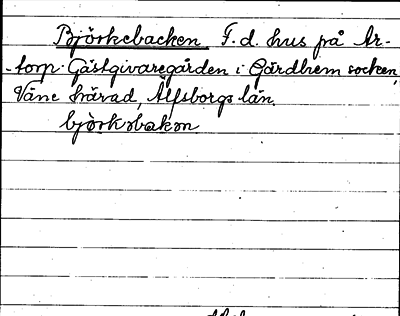 Björkebacken F. d. hus på Ar-
-torp Gästgivaregården i Gärdhem socken,
Väne härad, Älfsborgs län.
björkobakon